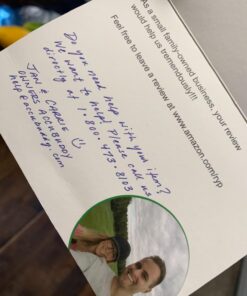 As a small family-owned business, your review
would help us tremendously!!!
Feel free to leave a review at www.amazon.com/ryp
Do you need help with your item?
We want to help! Please call us
directly at 1-800-473-8103
JANE & CARRIE
OWNERS